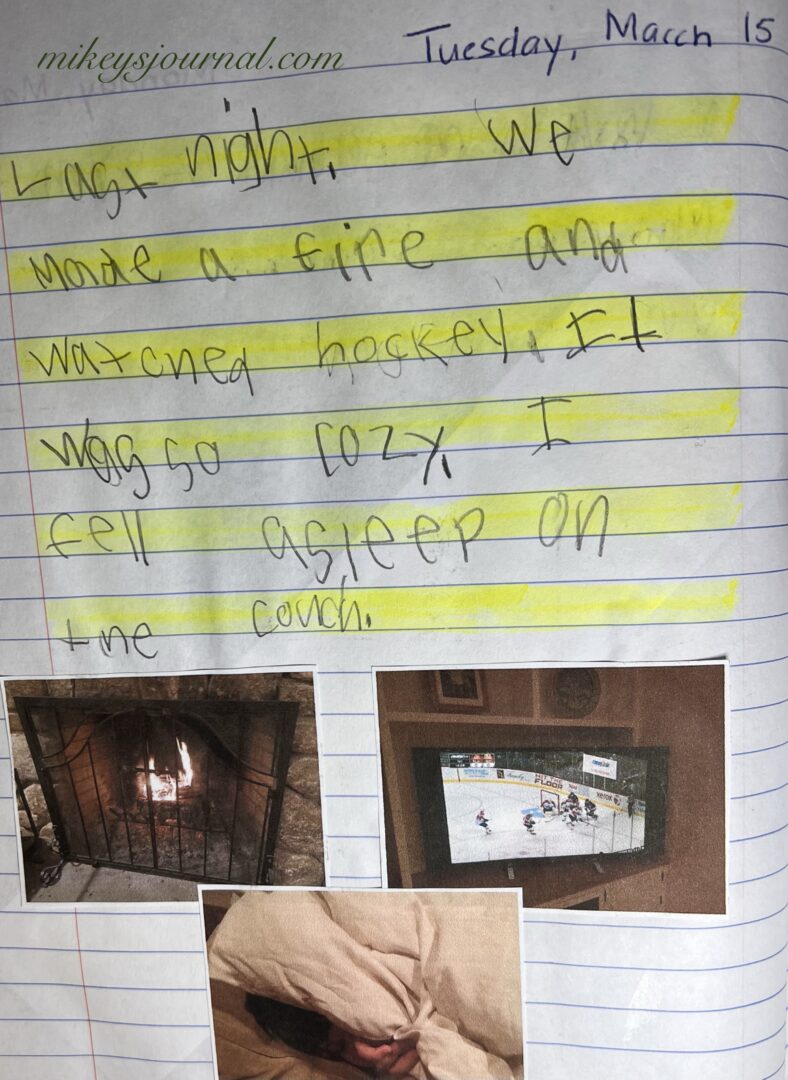 mikeysjournal.com
Tuesday, March 15
Last night, We
made a fire and
watched hockey. It
was so cozy, I
fell asleep on
the couch.
FLOOR
xerox